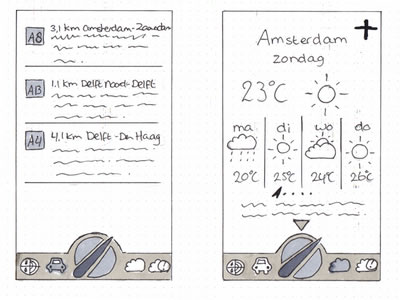 A8 3,1 km Amsterdam-Zaandam
A13 1.1 km Delft Noord-Delft
A4 4,1 km Delft-Den Haag
Amsterdam
zondag
23°C
ma di wo do
20°C 25°C 24°C 26°C